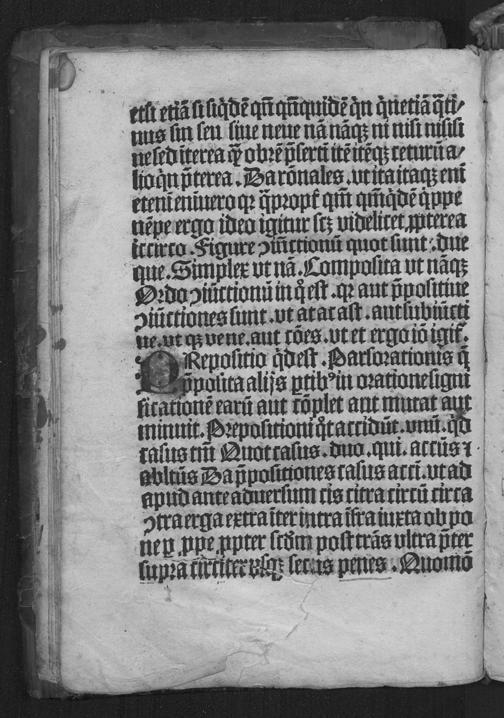 etsi etiā si siq̄dē qn̄ qn̄quidē q̄n q̄netiā q̄ti/
nus sin seu siue neue nā nāqꝫ ni nisi nisisi
ne sed īterea qꝫ obrē p̄sertī itē itēqꝫ ceterū a/
lio q̄n p̄terea . Da rōnales . vt ita itaqꝫ enī
etenī eniuero qꝛ q̄propt̄ qm̄ qm̄q̄dē q̄ppe
nēpe ergo ideo igitur scꝫ videlicet ꝓpterea
iccirco . Figure ꝯiūctionū quot sunt . due
que . Simplex vt nā . Composita vt nāqꝫ
Ordo ꝯiūctionū in q̊ est . qꝛ aut p̄positiue
ꝯiūctiones sunt . vt at ac ast . aut subiūcti
ue . vt qꝫ ve ne . aut cōes . vt et ergo iō igit̄ .
PRepositio q̄d est . Pars orationis q̄
p̄posita alijs ꝑtibꝰ in oratione signi
ficationē earū aut cōplet aut mutat aut
minuit . Prepositioni q̊t accidūt . vnū . q̄d
casus tm̄ Quot casus . duo . qui . accūs ⁊
abltūs Da p̄positiones casus accī . vt ad
apud ante aduersum cis citra circū circa
ꝯtra erga extra īter intra īfra iuxta ob po
ne ꝑ ꝓpe ꝓpter scdm̄ post trās vltra p̄ter
supra circiter vsqꝫ secus penes . Quomō